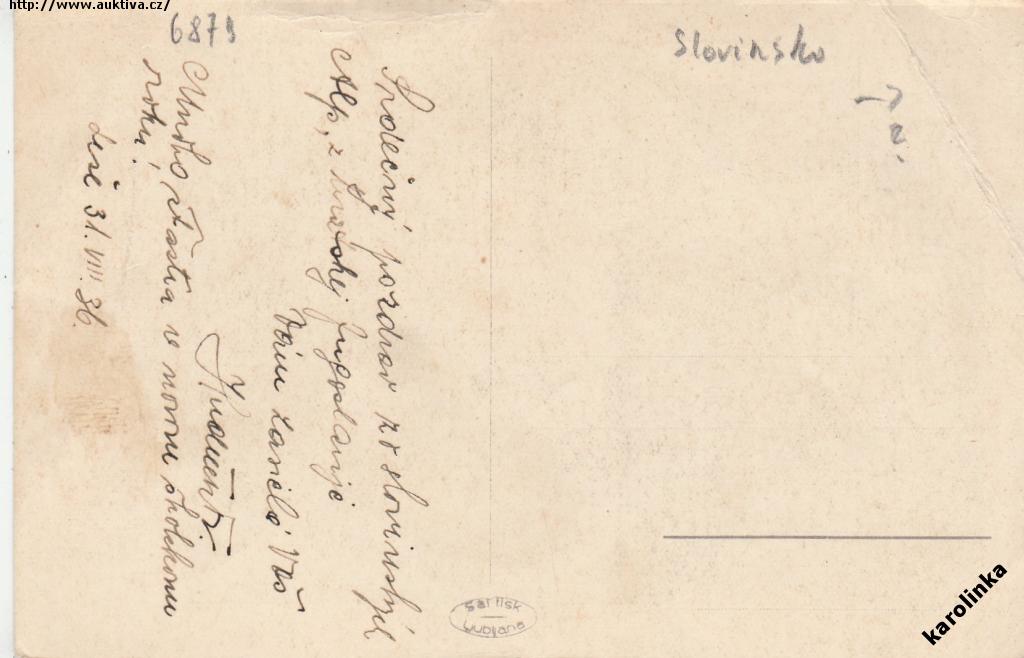 http://www.auktiva.cz/
6879
Slovinsko
→
?
Srdečný pozdrav ze slovinských
Alp, z horskej Jugoslavije
Vám zasílá Váš
Mnoho šťastia v novém školskom
roku!
31. VIII. 36.
Sartisk
Ljubljana
karolinka